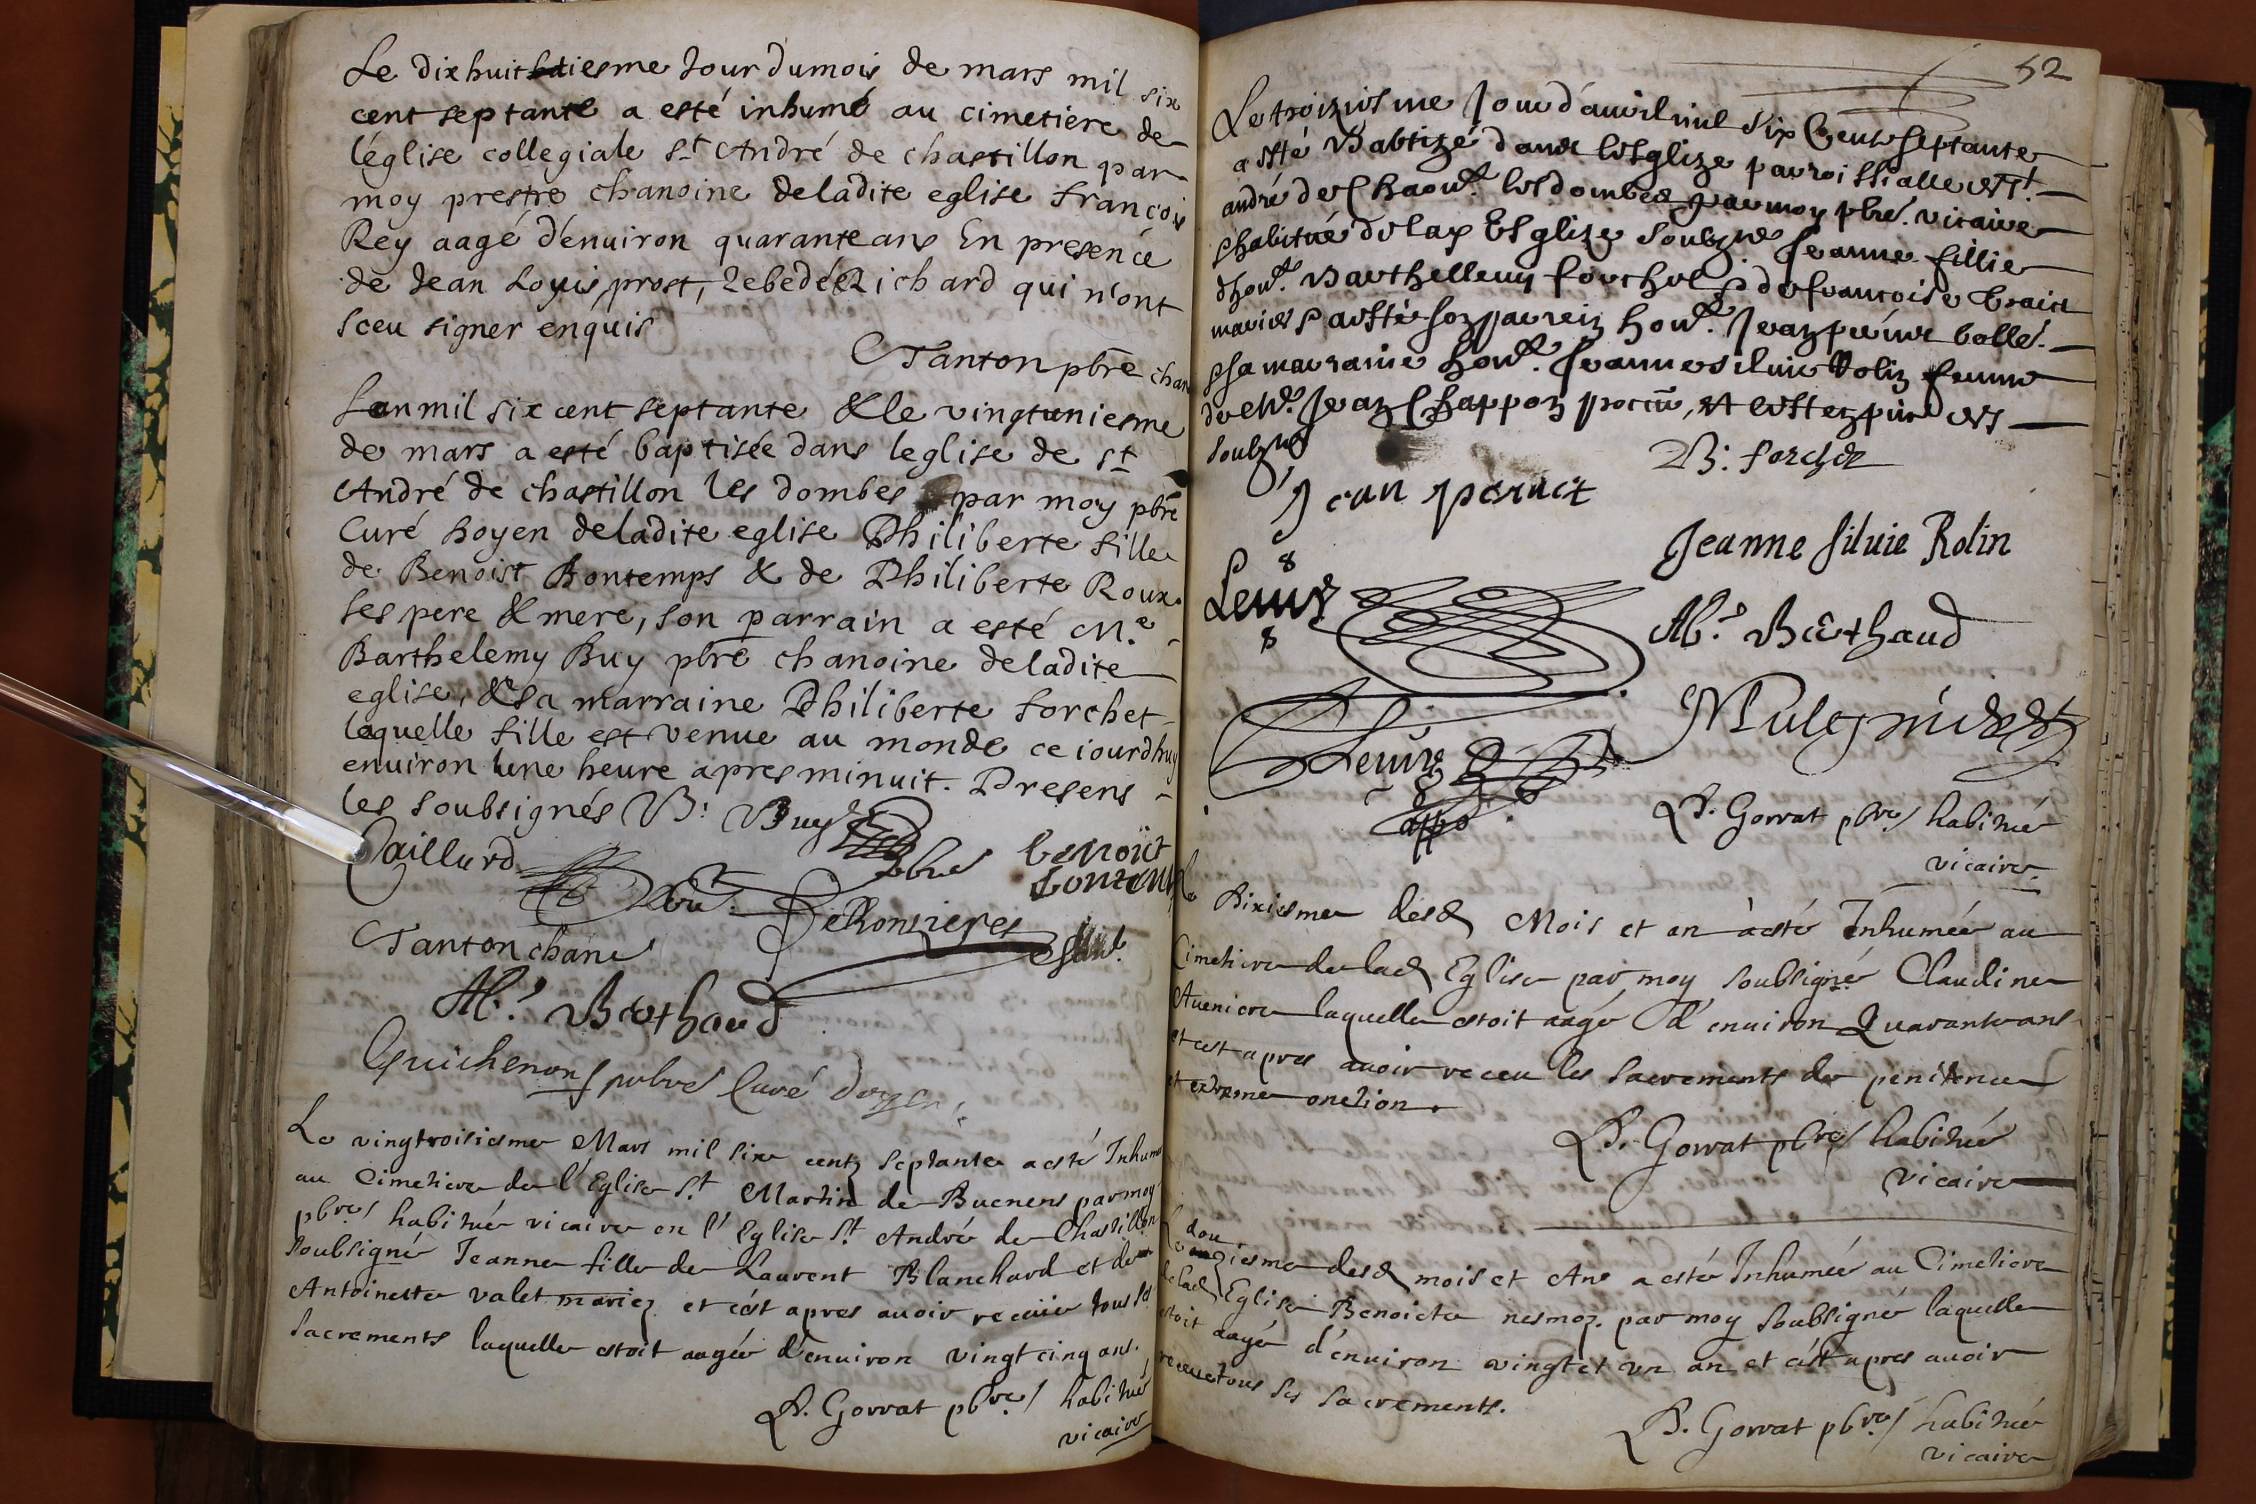 Le dixhuitiesme Jour du mois de mars mil six
cent septante a esté inhumé au cimetiere de
l'église collegiale St André de chastillon par
moy prestre chanoine deladite eglise françois
Rey aagé d'enuiron quarante ans En presence
de Jean Louis prost, Zebedée Richard qui n'ont
sceu signer enquis
Tanton pbre chan
Lan mil six cent septante & le vingtuniesme
de mars a esté baptisée dans leglise de St
André de chastillon les dombes par moy pbre
Curé Doyen deladite eglise Philiberte fille
de Benoist Bontemps & de Philiberte Roux
ses pere & mere, son parrain a esté Me
Barthelemy Buy pbre chanoine deladite
eglise, & sa marraine Philiberte forchet
laquelle fille est venue au monde ce iourdhuy
enuiron une heure apres minuit. Presens
les soubsignés B: Buy
pbre
Caillard
benoist
bontemps
DeRonzieres
Tanton chane
Berthaud
Guichenon pbre Curé doyen
Le vingtroisiesme Mars mil six centz septante a esté Inhumé
au Cimetiere de l'Eglise St Martin de Buenens par moy
pbre habitué vicaire en l'Eglise St André de Chastillon
soubsigné Jeanne fille de Laurent Blanchard et de
Antoinette valet mariez et c'est apres auoir receüe tous les
sacrements laquelle estoit aagée d'enuiron vingt cinq ans.
P. Gorrat pbre habitué
vicaire
52
Le troiziesme Jour d'auril mil six Cent septante
a esté Babtizé dans l'Esglize parroissialle St
andré de Chaon. les dombes par moy pbre. vicaire
habitué de lad Esglize soubzne Jeanne fillie
d'hon. Barthellemy forchet & de francoise
mariés & a esté son parrein hon. Jean
& sa marraine hon. Jeanne siluie Rolin femme
de Me. Jean Chappon
soubznes
B: forchet
Jean peruict
Jeanne siluie Rolin
Berthaud
P. Gorrat pbre habitué
vicaire
Le Dixiesme desd Mois et an à esté Inhumée au
Cimetiere de lad Eglise par moy soubsigné Claudine
Aueniere laquelle estoit aagé d'enuiron Quarante ans
et c'est apres auoir receu les sacrements de penitence
et extreme onction.
P. Gorrat pbre habitué
vicaire
dou
Le ziesme desd mois et Ans a esté Inhumée au Cimetiere
de lad Eglise Benoicte nesmoz par moy soubsigné laquelle
estoit aagé d'enuiron vingt et vn an et c'est apres auoir
receue tous ses sacrements.
P. Gorrat pbre habitué
vicaire